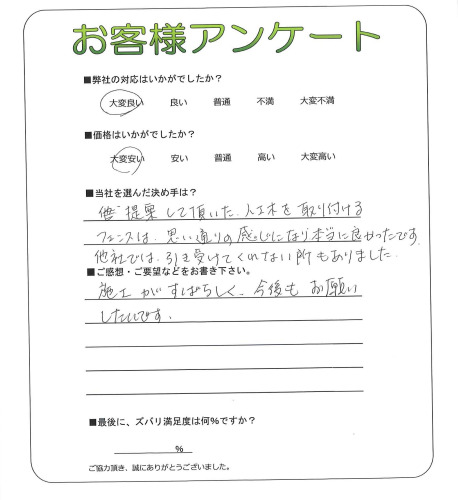 お客様アンケート
■弊社の対応はいかがでしたか？
大変良い 良い 普通 不満 大変不満
■価格はいかがでしたか？
大変安い 安い 普通 高い 大変高い
■当社を選んだ決め手は？
提案して頂いた、人工木を取り付ける
フェンスは、思い通りの感じになり本当に良かったです。
他社では、引き受けてくれない所もありました。
■ご感想・ご要望などをお書き下さい。
施工がすばらしく、今後もお願い
したいです。
■最後に、ズバリ満足度は何％ですか？
％
ご協力頂き、誠にありがとうございました。